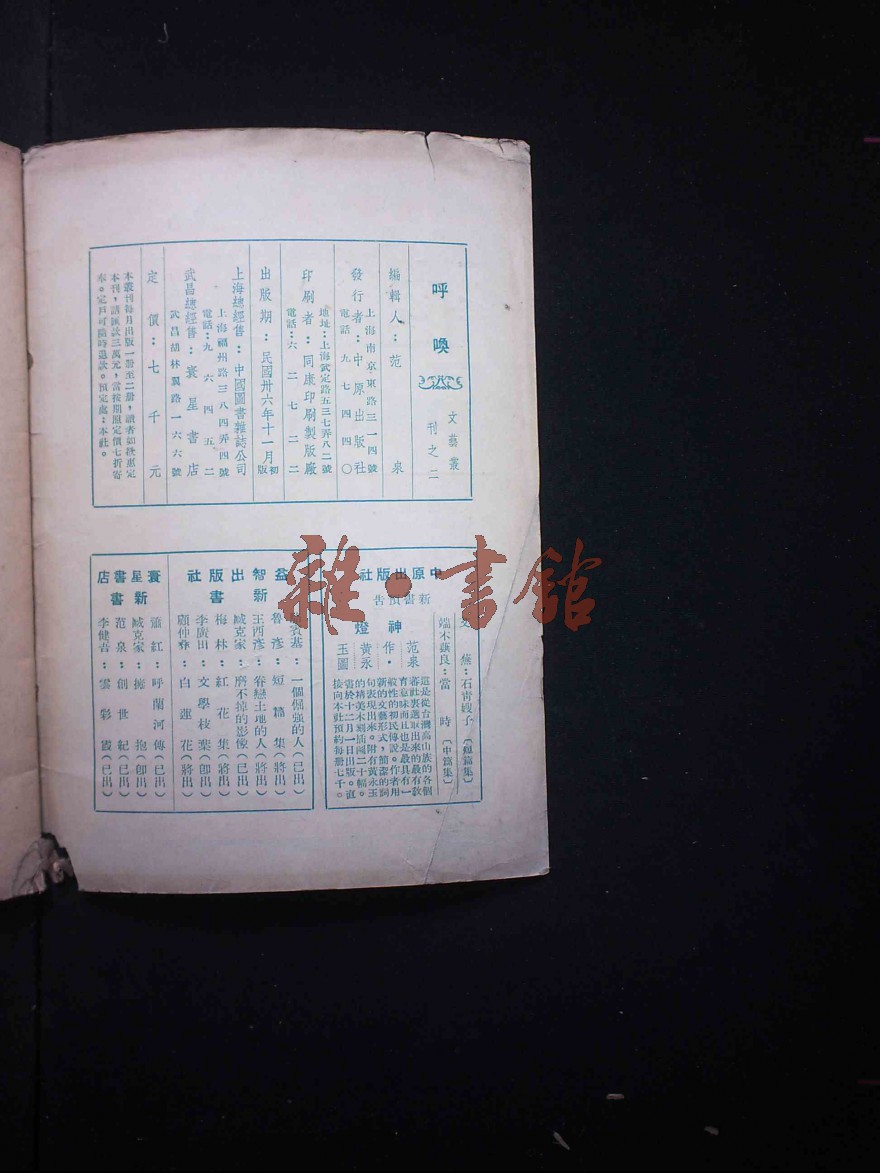 呼喚
文藝叢
刊之二
編輯人：范泉
發行者：中原出版社
上海南京東路三一四號
電話九七四四〇
印刷者：同康印刷製版廠
地址：上海武定路五三七弄八二號
電話：六二七二二
出版期：民國卅六年十一月初版
上海總經售：中國圖書雜誌公司
上海福州路三八四弄四號
電話：九六四五二
武昌總經售：寰星書店
武昌胡林翼路一六六號
定價：七千元
本叢刊每月出版一册至二册，讀者如欲惠定
本刊，請匯款三萬元，當按期照定價七折寄
奉。定戶可隨時退款。預定處：本社。
中原出版社
新書預告
艾蕪：石青嫂子（短篇集）
端木蕻良：當時（中篇集）
神燈
范泉作·
黃永玉圖
這是從台灣高山族的各個
蕃社裏選取出來的最有教
育意味而且也是最具有一
般性的初民傳說。作者用
新的文藝形式，簡潔的詞
句表現出來。附有黃永玉
的精美木刻插圖二十幅。
書於十二月一日出版。直
接向本社預約每册七千。
益智出版社
新書
一個倔強的人（已出）
魯彥：短篇集（將出）
王西彥：眷戀土地的人（將出）
臧克家：磨不掉的影像（已出）
梅林：紅花集（將出）
李廣田：文學枝葉（卽出）
顧仲彝：白蓮花（將出）
寰星書店
新書
蕭紅：呼蘭河傳（已出）
臧克家：擁抱（卽出）
范泉：創世紀（已出）
李健吾：雲彩霞（已出）
雜·書館